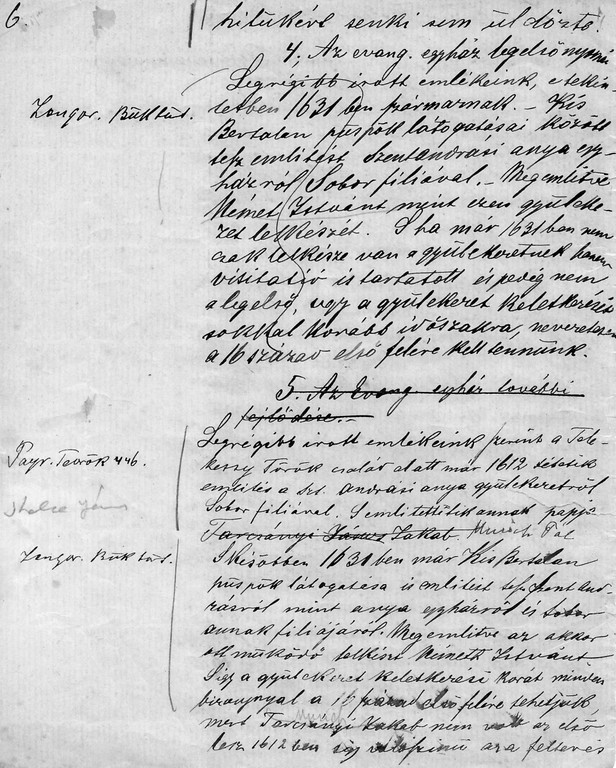 6.
hitükért senki sem üldözte.
4, Az evang. egyház legelső nyomai
Legrégibb írott emlékeink, e tekin
Zongor. Bük tört. tetben 1631 ben származnak. – Kis
Bertalan püspök látogatásai között
tesz említést Szentandrási anya egy-
házról Sobor filiával. – Megemlítve
Német Istvánt mint ezen gyüleke-
zet lelkészét. S ha már 1631 ben nem
csak lelkésze van a gyülekezetnek hanem
visitatió is tartatott és pedig nem
a legelső, úgy a gyülekezet keletkezését
sokkal korább időszakra, nevezetesen
a 16 század első felére kell tennünk.
5. Az Evang. egyház további
fejlődése. –
Legrégibb írott emlékeink szerint a Tele-
Payr. Török 446. kessy Török család alatt már 1612 tétetik
említés a Szt. andrási anya gyülekezetről
Sobor filiával. S említtetik annak papja
Tarcsányi János Jakab. Munich Pál
Zongor. Bük tört. S később 1631 ben már Kis Bertalan
püspök látogatása is említést tesz Szent And-
rásról mint anya egyházról és Sobor
annak filiájáról. Megemlítve az akkor
ott működő lelkészt Németh Istvánt
S így a gyülekezet keletkezési korát minden
bizonnyal a 16 század első felére tehetjük,
mert Tarcsányi Jakab nem volt az első
lesz 1612 ben így valószínű az a feltevés